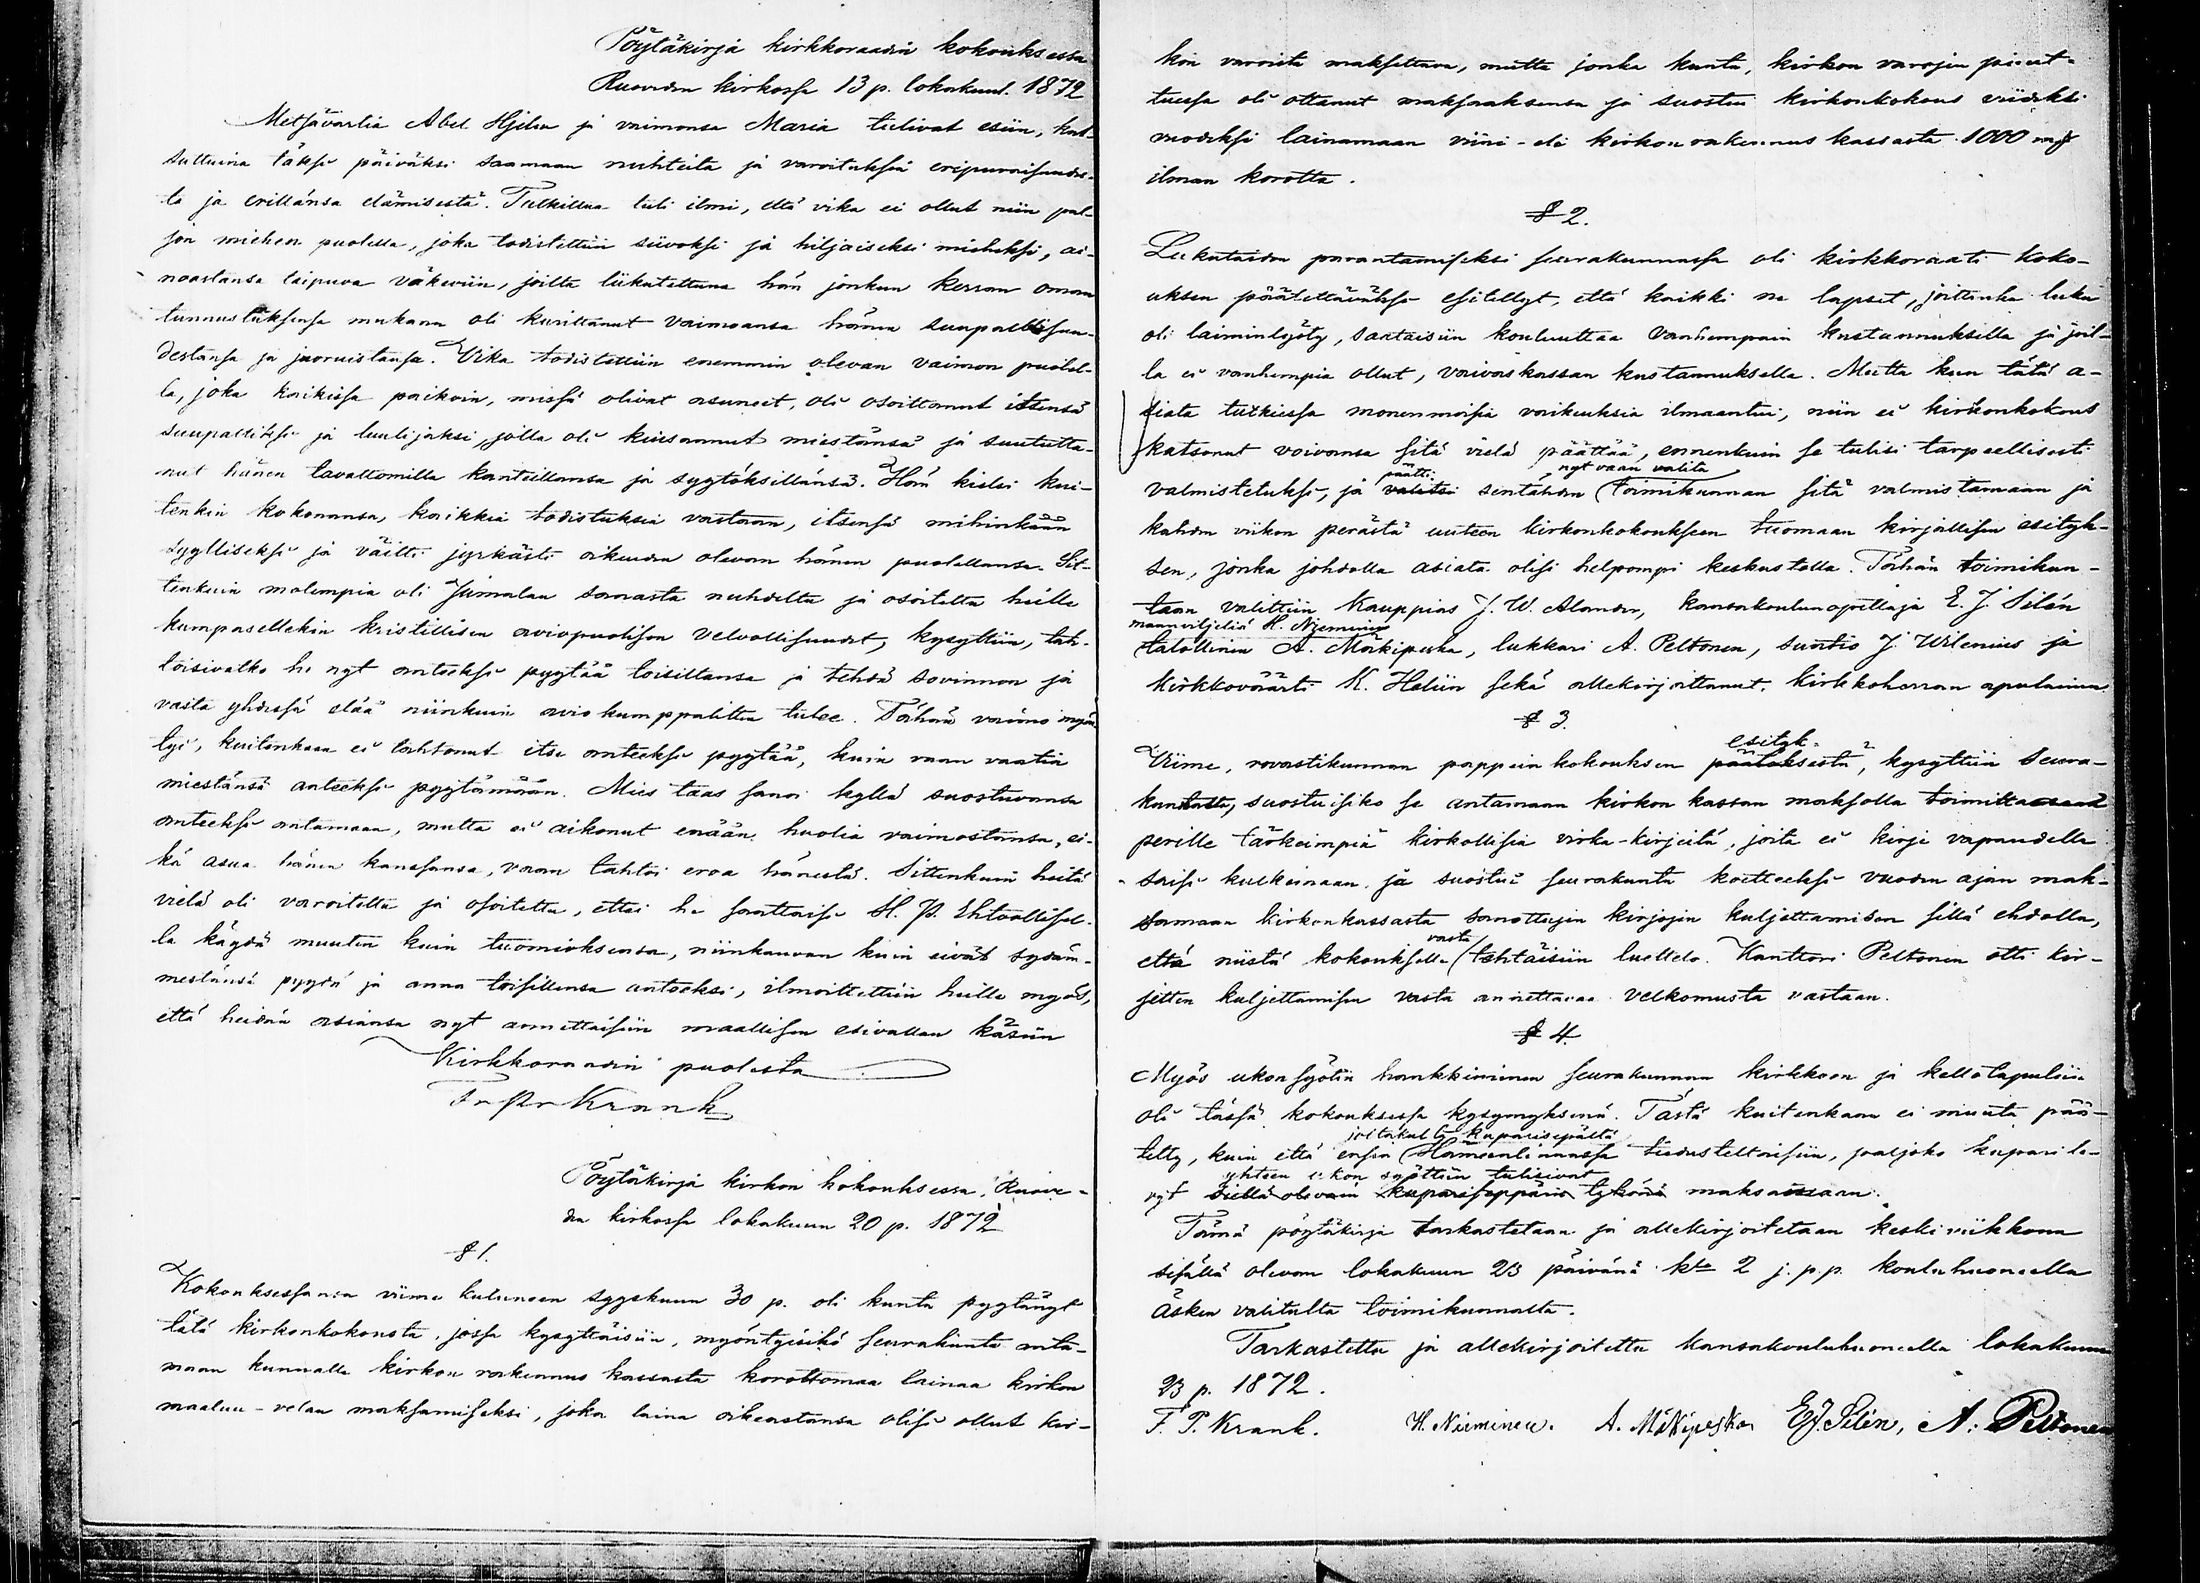 Pöytäkirja kirkkoraadin kokouksessa
Ruoveden kirkossa 13 p. lokakuut. 1872
Metsävartia Abel Hjelm ja vaimonsa Maria tulivat esiin, kut-
suttuina täksi päiväksi saamaan nuhteita ja varoituksia eripuraisuudes-
ta ja erillänsä elämisestä. Tutkittua tuli ilmi, että vika ei ollut niin pal-
jon miehen puolella, joka todistettiin siivoksi ja hiljaiseksi mieheksi, ai-
noastansa taipuva väkeviin, joilta liikutettuna hän jonkun kerran oman
tunnustuksensa mukaan oli kurittanut vaimoansa hänen suupaltisuu-
destansa ja juoruistansa. Vika todistettiin enemmin olevan vaimon puolel-
la, joka kaikissa paikoin, missä olivat asuneet, oli osoittanut itsensä
suupaltiksi ja luulijaksi, jolla oli kiusannut miestänsä ja suututta-
nut hänen tavattomilla kanteillansa ja syytöksillänsä. Hän kielsi kui-
tenkin kokonansa, kaikkia todistuksia vastaan, itsensä mihinkään
syylliseksi ja väitti jyrkästi oikeuden olevan hänen puolellansa. Sit-
tenkuin molempia oli Jumalan sanasta nuhdeltu ja osoitettu heille
kumpasellekin kristillisen aviopuolison velvollisuudet, kysyttiin, tah-
toisivatko he nyt anteeksi pyytää toisiltansa ja tehdä sovinnon ja
vasta yhdessä elää niinkuin aviokumppalitten tulee. Tähän vaimo myön
tyi, kuitenkaan ei tahtonut itse anteeksi pyytää, kuin vaan vaatia
miestänsä anteeksi pyytämään. Mies taas sanoi kyllä suostuvansa
anteeksi antamaan, mutta ei aikonut enään huolia vaimostansa, ei-
kä asua hänen kanssansa, vaan tahtoi eroa hänestä. Sittenkuin heitä
vielä oli varoitettu ja osoitettu, ettei he saattaisi H. P. Ehtoollisel-
la käydä muuten kuin tuomioksensa, niinkauvan kuin eivät sydäm-
mestänsä pyydä ja anna toisillensa anteeksi, ilmoitettiin heille myös,
että heidän asiansa nyt annettaisiin maallisen esivallan käsiin
Kirkkoraadin puolesta
Fr Pr Krank
Pöytäkirja kirkon kokouksessa, Ruove-
den kirkossa lokakuun 20 p. 1872
§ 1.
Kokouksessansa viime kuluneen syyskuun 30 p. oli kunta pyytänyt
tätä kirkonkokousta, jossa kysyttäisiin, myöntyisikö seurakunta anta-
maan kunnalle kirkon rakennus kassasta korottomaa lainaa kirkon
maaluu-velan maksamiseksi, joka laina oikeastansa olisi ollut kir-
kon varoista maksettava, mutta jonka kunta, kirkon varojen puut-
tuessa oli ottanut maksaaksensa ja suostui kirkonkokous viideksi
vuodeksi lainamaan viini- eli kirkon rakennus kassasta 1000 mk
ilman korotta.
§ 2.
Lukutaidon parantamiseksi seurakunnassa oli kirkkoraati koko-
uksen päätettäväksi esitellyt, että kaikki ne lapset, joittenka luku
oli laiminlyöty, saataisiin kouluuttaa vanhempain kustannuksella ja joil-
la ei vanhempia ollut, vaivaskassan kustannuksella. Mutta kun tätä a-
siata tutkiessa monenmoisia vaikeuksia ilmaantui, niin ei kirkonkokous
katsonut voivansa sitä vielä päättää, ennenkuin se tulisi tarpeellisesti
päätti nyt vaan valita
valmistetuksi, ja valitsi sentähden toimikunnan sitä valmistamaan ja
kahden viikon perästä uuteen kirkonkokoukseen tuomaan kirjallisen esityk-
sen, jonka johdolla asiata olisi helpompi keskustella. Tähän toimikun-
taan valittiin Kauppias J. W. Alander, kansakoulunopettaja E. J. Silén
maanviljeliä H. Nieminen
talollinen A. Mäkipeska, lukkari A. Peltonen, suntio J. Wilenius ja
kirkkoväärti K. Helin sekä allekirjoittanut, kirkkoherran apulainen
§ 3.
esityk-
Viime, rovastikunnan pappein kokouksen päätöksestä, kysyttiin seura-
kunnalta, suostuisiko se antamaan kirkon kassan maksolla toimittaa
perille tärkeimpiä kirkollisia virka-kirjeitä, joita ei kirje vapaudella
saisi kulkemaan, ja suostui seurakunta koetteeksi vuoden ajan mak-
samaan kirkonkassasta sanottujen kirjojen kuljettamisen sillä ehdolla,
vasta
että niistä kokouksille tehtäisiin luettelo. Kanttori Peltonen otti kir-
jetten kuljettamisen vasta annettavaa velkomusta vastaan.
§ 4.
Myös ukonsyötin hankkiminen seurakunnan kirkkoon ja kellotapuliin
oli tässä kokouksessa kysymyksenä. Tästä kuitenkaan ei muuta pää-
joltakulta kupariseppältä
tetty, kuin että ensin Hämeenlinnassa tiedusteltaisiin, paljoko kupari le-
yhteen ukon syöttiin tulisivat
vyt siellä olevain kupariseppäin tykönä maksamaan.
Tämä pöytäkirja tarkastetaan ja allekirjoitetaan keskiviikkona
sisällä olevan lokakuun 23 päivänä klo 2 j.p.p. kouluhuoneella
äsken valitulta toimikunnalta.
Tarkastettu ja allekirjoitettu kansakouluhuoneella lokakuun
23 p. 1872.
F. P. Krank. H. Nieminen. A. Mäkipeska EJ. Silén, A: Peltonen